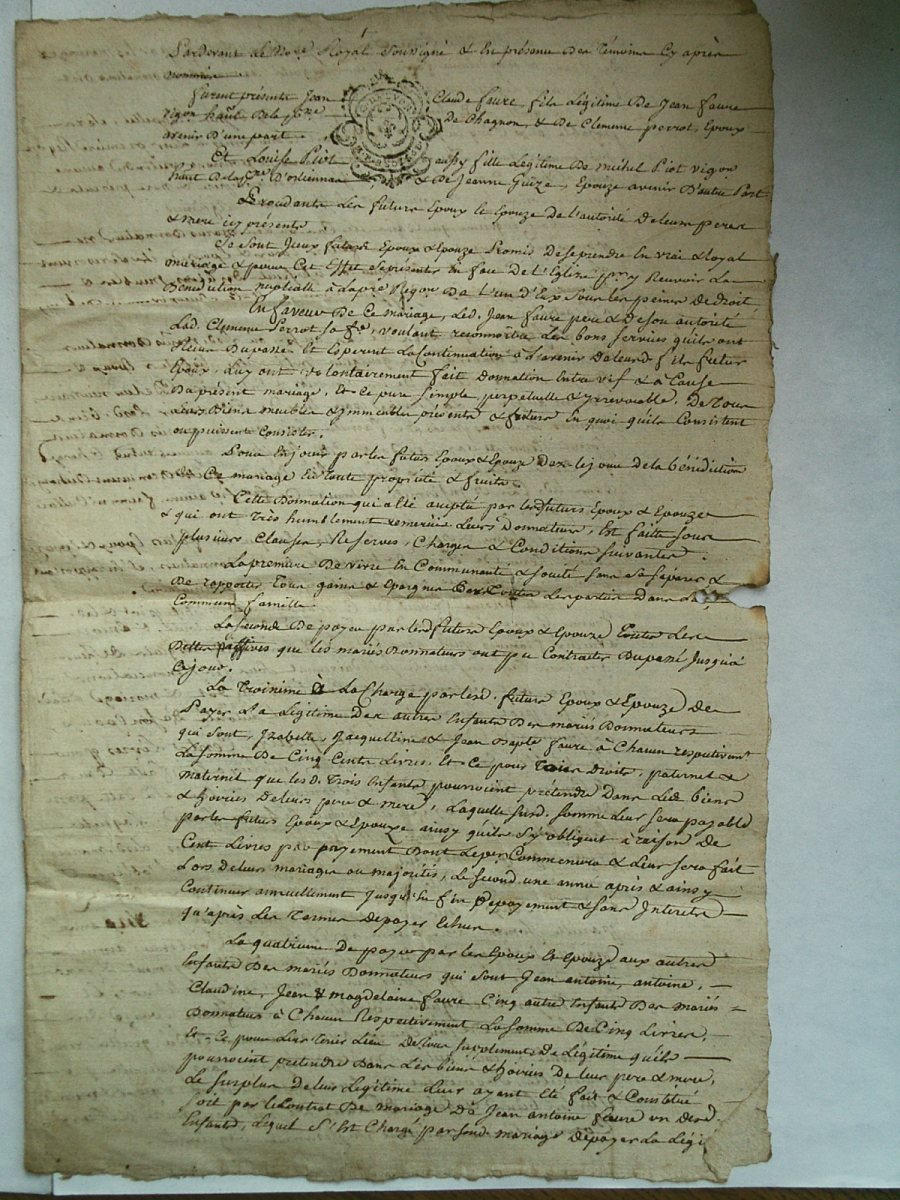 Pardevant le No.re Royal Soussigné & En présence Des Témoins Cy après
nommés
furent présents Jean Claude faure fils Légitime De Jean faure
vigon haut Dela p.sse De Chagnon, & De Clemence perrot, Epoux
avenir D'une part.
Et Louise Piot aussy fille Légitime De michel Piot vigon
haut & De Jeanne Epouze avenir D'autre Part
Les futurs Epoux & Epouze De l'autorité De leurs peres
& mere icy présents
Se sont Iceux futurs Epoux & Epouze Promis De se prendre En vrai & Loyal
mariage & pour Cet Effet se présenter En face De l'Eglise pour y Recevoir La
Bénédiction nuptialle à La pre Réq.on De L'un D'Eux Sous les peines De droit
En faveur De Ce mariage, Led. Jean faure pere & De son autorité
Lad. Clemence Perrot sa fe, voulant reconnoître Les bons services quils ont
Du passé Et Espèrent La Continuation à L'avenir Dud. fils futur
Epoux, Luy ont volontairement fait Donnation Entre vif & à Cause
Du présent mariage, Et Ce pure simple, perpetuelle & irrevocable, De Tous
Leurs Biens meubles & Immeubles présents & futurs En quoi quils Consistent
ou puissent Consister.
Pour En jouir par les futurs Epoux & Epouze Des le jour de la bénédiction
De Ce mariage En toute propriété & fruits.
Cette Donnation qui a Eté acceptée par lesd. futurs Epoux & Epouze
& qui ont Très humblement remercié Leurs Donnateurs, Est faite sous
plusieurs Clauses, Réserves, Charges & Conditions suivantes.
La premiere De vivre En Communauté & société sans se séparer &
De rapporter Tous gains & Epargnes De Toutes Les parties Dans La
Commune famille
La seconde De payer par lesd. futurs Epoux & Epouze Toutes Les
Dettes passives que les mariés Donnateurs ont pu Contracter Du passé Jusqu'à
Ce jour.
La Troisieme à La Charge par lesd. futurs Epoux & Epouze De
Payer La Légitime Des autres Enfants Des mariés Donnateurs
qui sont, Izabelle, Jacquelline & Jean Bapte faure à Chacun respectivemt
La somme De Cinq Cents Livres, Et Ce pour Tous Droits, paternel &
maternel que lesd. Trois Enfants pourroient prétendre Dans Lesd. biens
& hoiries De leurs pere & mere, Laquelle susd. somme Leur sera payable
par les futurs Epoux & Epouze ainsy quils s'y obligent à raison De
Cent Livres par payement Dont Le per Commencera & Leur sera fait
Lors De leurs mariages ou majorités, Le second une année après & ainsy
Continuer annuellement Jusqu'en fin De payement & sans Interets
qu'après Les Termes De payer Echus.
La quatrieme De payer par les Epoux & Epouze aux autres
Enfants Des mariés Donnateurs qui sont Jean antoine, antoine,
Claudine, Jean & Magdelaine faure Cinq autres Enfants Des mariés
Donnateurs à Chacun Respectivement La somme De Cinq Livres,
Et Ce pour Leur Tenir Lieu De Tous suplements De Légitime quils
pourroient prétendre Dans Les biens & hoiries De leur pere & mere,
Le surplus De leur Légitime Leur ayant Eté fait & Constitué
soit par le Contrat De mariage Du Jean antoine faure un Desd.
Enfants, Lequel s'Est Chargé par sond. mariage De payer La Légi